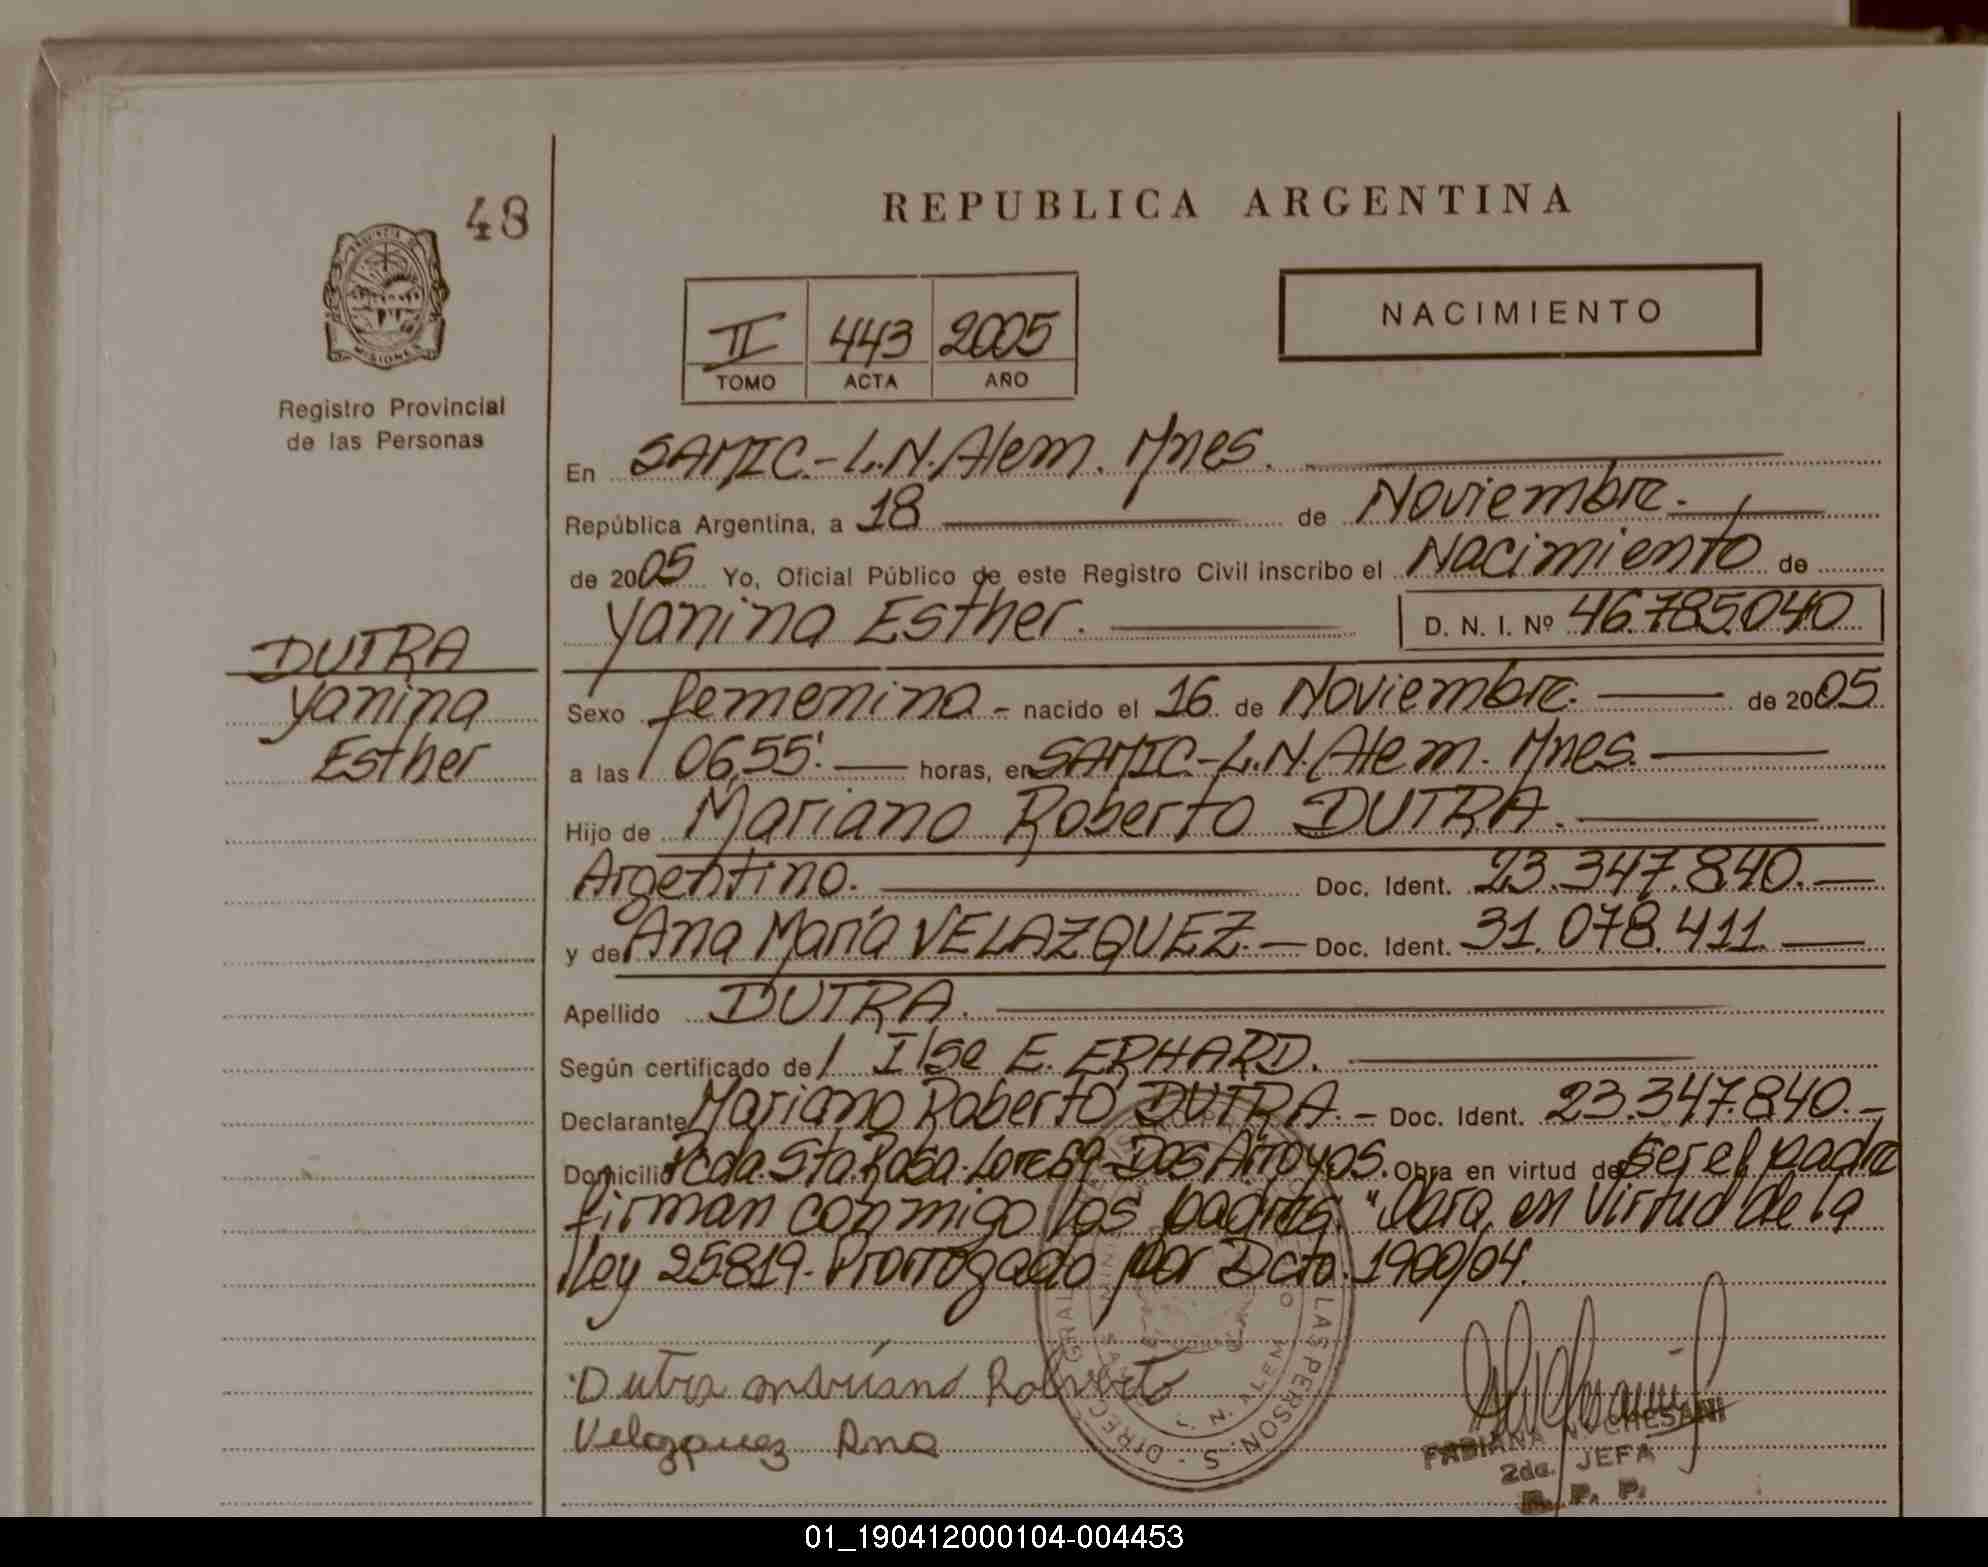 48
REPUBLICA ARGENTINA
PROVINCIA DE
MISIONES
Registro Provincial
de las Personas
II 443 2005
TOMO ACTA AÑO
NACIMIENTO
En SAMIC.-L.N.Alem. Mnes.
República Argentina, a 18 de Noviembre.
de 2005 Yo, Oficial Público de este Registro Civil inscribo el Nacimiento de
Yanina Esther. D. N. I. Nº 46.785.040
DUTRA
Yanina
Esther
Sexo femenino - nacido el 16 de Noviembre. de 2005
a las 06,55' horas, en SAMIC-L.N.Alem. Mnes.
Hijo de Mariano Roberto DUTRA.
Argentino. Doc. Ident. 23.347.840.-
y de Ana María VELAZQUEZ.- Doc. Ident. 31.078.411
Apellido DUTRA.
Según certificado de Ilse E. ERHARD.
Declarante Mariano Roberto DUTRA.- Doc. Ident. 23.347.840.-
Domicilio Pcda. Sta. Rosa- Dos Arroyos. Obra en virtud de ser el padre
firman conmigo los padres. "Obra en virtud de la
ley 25819. Prorrogado por Dcto. 1900/04.
Dutra mariano Roberto
Velazquez Ana
L. N. ALEM
LAS PERSONAS - DIREC. GRAL
FABIANA N. CHESANI
2da. JEFA
R. P. P.
01_190412000104-004453